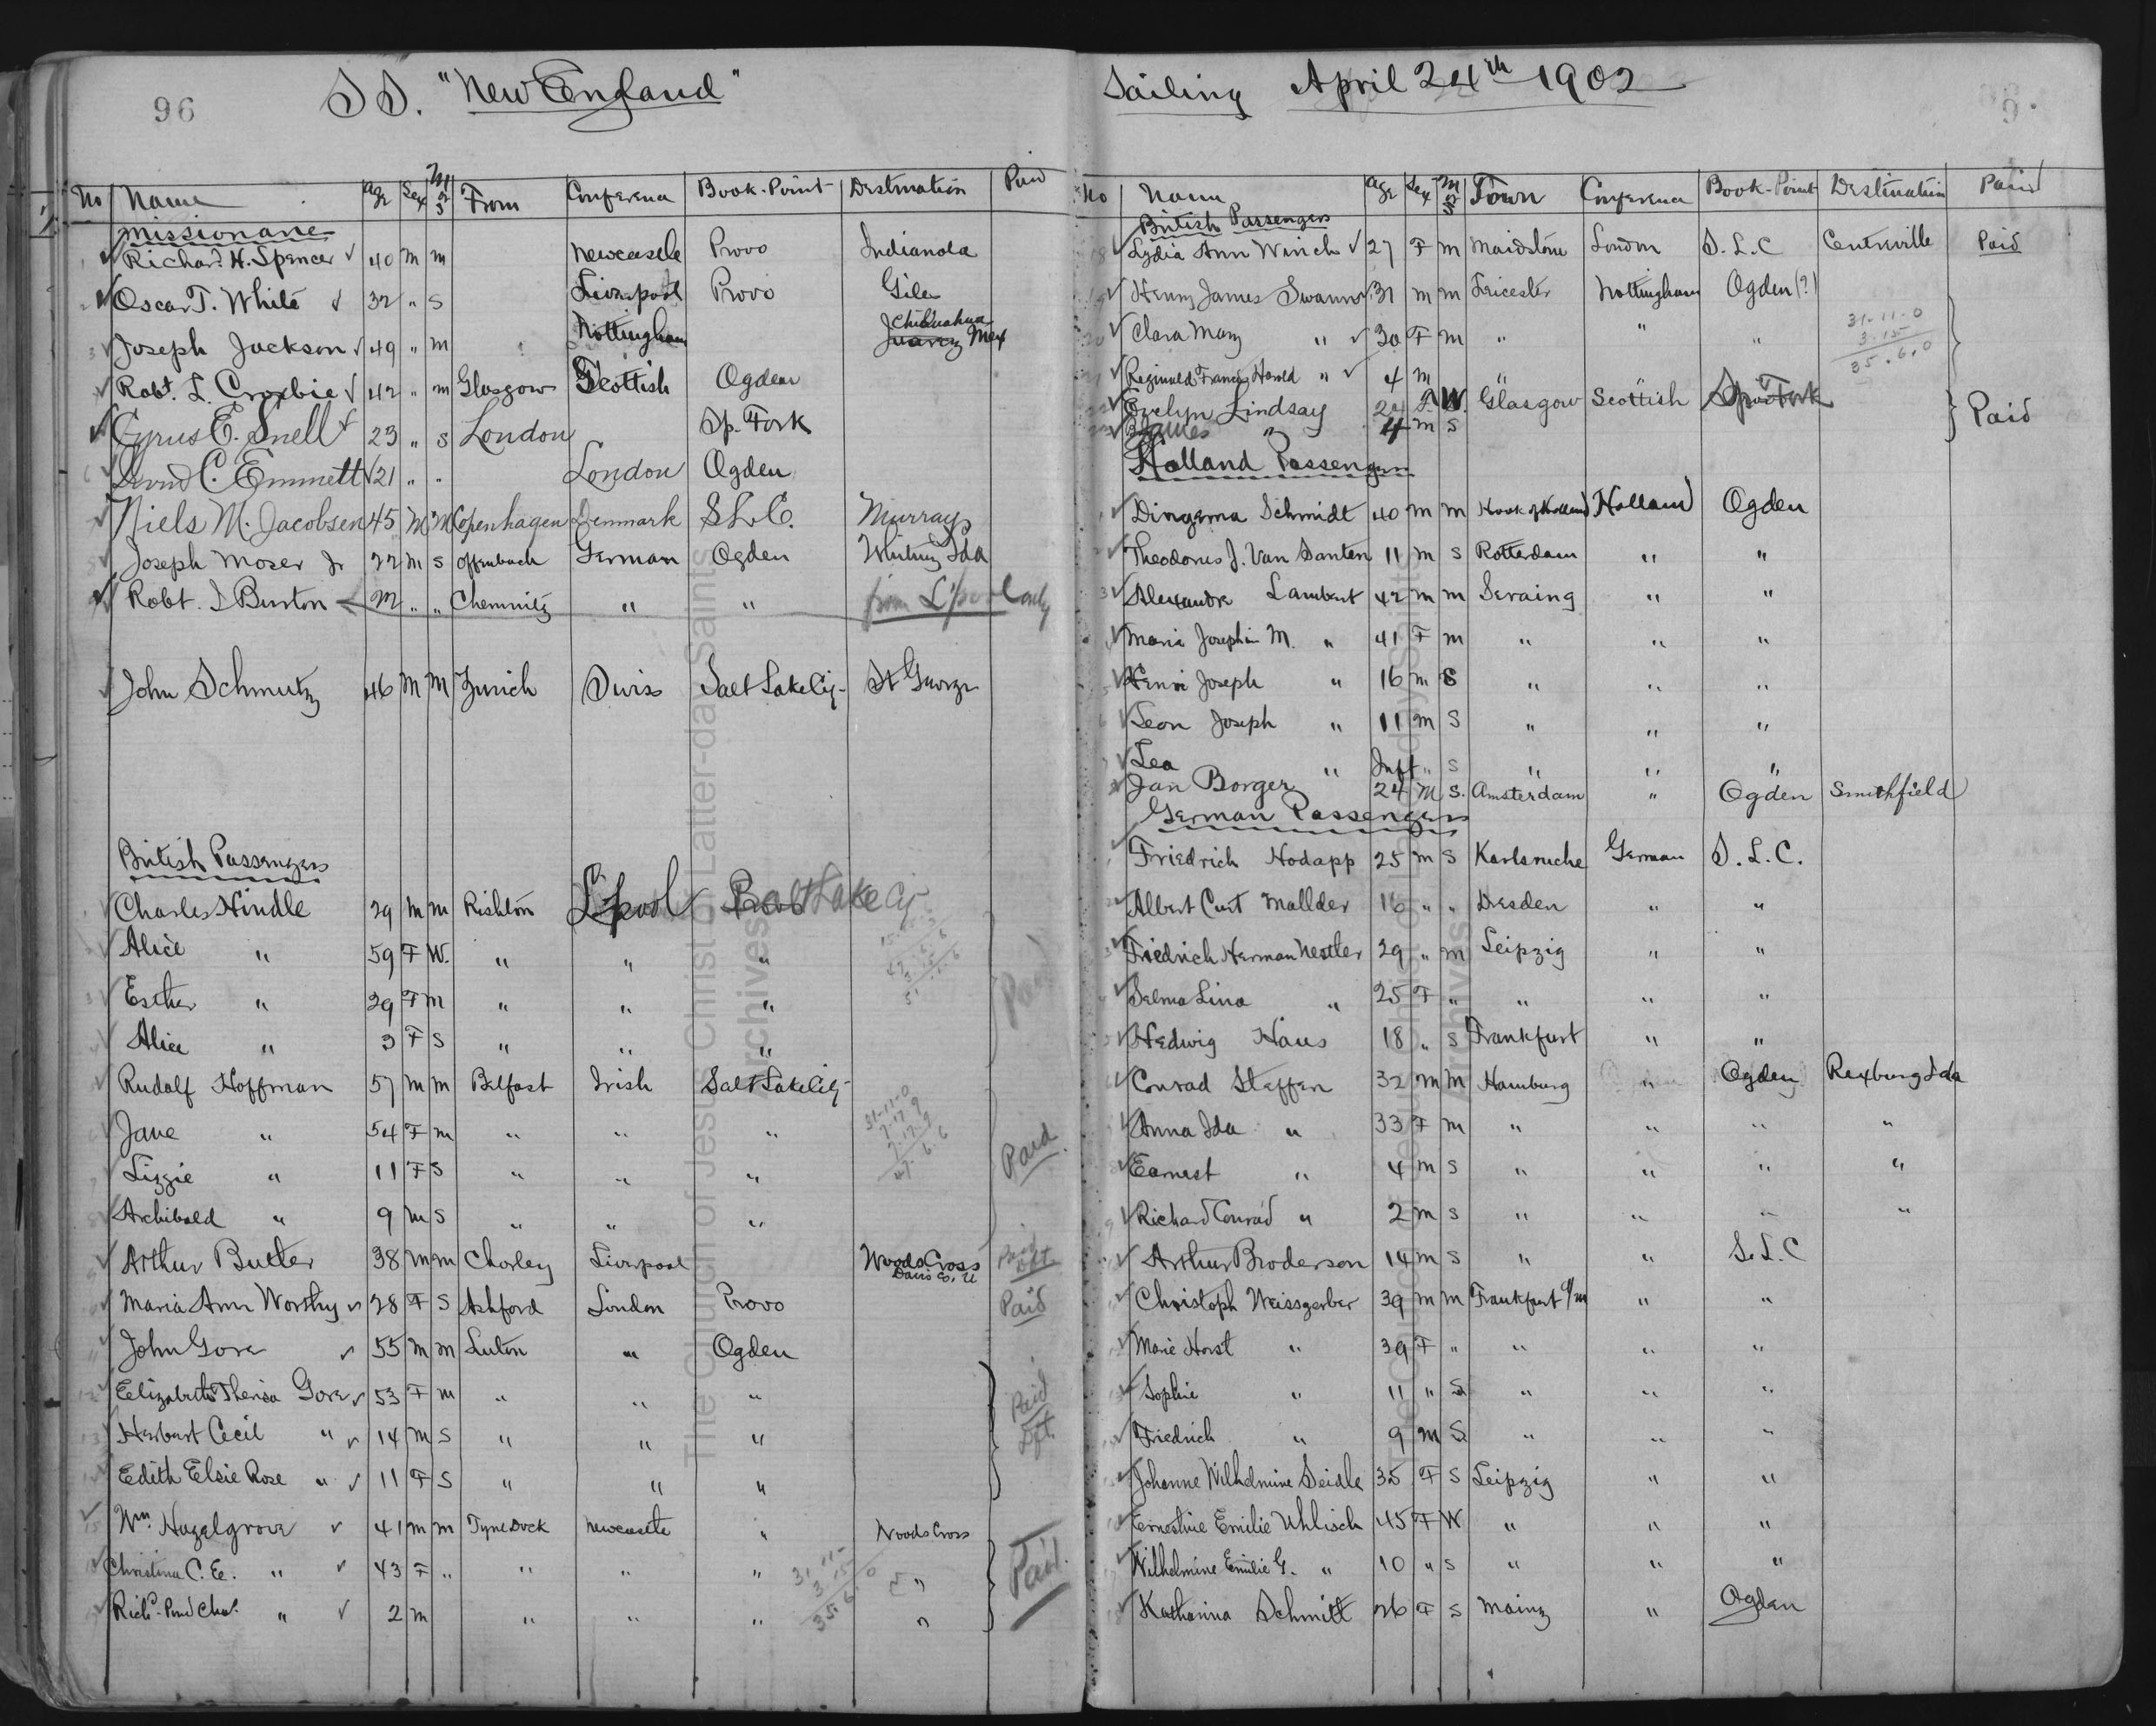 96
S S. "New England"
No Name Age Sex M or S From Conference Book-Point Destination Paid
Missionarie
Richard H. Spencer 40 m m Newcastle Provo Indianola
Oscar T. White 32 " s Liverpool Provo Gila
Joseph Jackson 49 " m Nottingham Chihuahua Juarez Mex
Robt. L. Croxbie 42 " m Glasgow Scottish Ogden
Cyrus E. Snell 23 " s London Sp. Fork
C. Emmett 21 " " London Ogden
Niels M. Jacobsen 45 M M Copenhagen Denmark S.L.C. Murray
Joseph Moser Jr 22 m s Offenbach German Ogden Whitney Ida
Robt. I Burton m " " Chemnitz " " from L'pool only
John Schmutz 46 M M Zurich Swiss Salt Lake City St George
British Passengers
Charles Hindle 29 m m Rishton L'pool Provo Salt Lake City
Alice " 59 F W. " " "
Esther " 29 F m " " "
Alice " 3 F S " " "
Rudolf Hoffman 57 m m Belfast Irish Salt Lake City
31-11-0
7.17.9
7.17.9
47.6.6
Jane " 54 F m " " "
Lizzie " 11 F S " " " Paid.
Archibald " 9 m S " " "
Arthur Butler 38 m m Chorley Liverpool Woods Cross Davis Co, U Paid Dft
Maria Ann Worthy 28 F S Ashford London Provo Paid
John Gore 55 m m Luton " Ogden
Elizabeth Theresa Gore 53 F m " " " Paid Dft.
Herbert Cecil " 14 m S " " "
Edith Elsie Rose " 11 F S " " "
Wm. Hazelgrove 41 m m Tyne Dock Newcastle " Woods Cross
Christina C. E. " 43 F " " " " " Paid.
Richd. Pond Chas. " 2 m " " " "
31 11-
3 15
35 6. 0
Sailing April 24th 1902
No Name Age Sex M or S Town Conference Book-Point Destination Paid
British Passengers
18 Lydia Ann Winch 27 F m Maidstone London S.L.C Centreville Paid
19 Henry James Swann 31 m m Leicester Nottingham Ogden (?)
31-11-0
3.15
35.6.0
20 Clara Mary " 30 F m " " "
21 Reginald Francis Harold " 4 m "
Evelyn Lindsay 24 F W. Glasgow Scottish Span Fork Paid
James " 4 m s
Holland Passengers
Dingema Schmidt 40 m m Hook of Holland Holland Ogden
Theodorus J. Van Santen 11 m s Rotterdam " "
3 Alexandre Lambert 42 m m Seraing " "
Maria Josephin M. " 41 F m " " "
Henri Joseph " 16 m S " " "
Leon Joseph " 11 m S " " "
Lea " Inft " s " " "
Jan Borger 24 M S. Amsterdam " Ogden Smithfield
German Passengers
Friedrich Hodapp 25 m S Karlsruhe German S.L.C.
Albert Curt Mallder 16 " " Dresden " "
Friedrich Herman Nestler 29 " m Leipzig " "
Selma Lina " 25 F " " " "
Hedwig Haus 18 " s Frankfurt " "
Conrad Steffen 32 m m Hamburg " Ogden Rexburg Ida
Anna Ida " 33 F m " " " "
Earnest " 4 m s " " " "
Richard Conrad " 2 m s " " " "
Arthur Broderson 14 m s " " S.L.C
Christoph Weissgerber 39 m m Frankfurt a/m " "
Marie Horst " 39 F " " " "
Sophie " 11 " S " " "
Friedrich " 9 m S " " "
Johanne Wilhelmine Seidle 35 F S Leipzig " "
Ernestine Emilie Uhlisch 45 F W " " "
Wilhelmine Emilie G. " 10 " s " " "
Katharina Schmitt 26 F s Mainz " Ogden
The Church of Jesus Christ of Latter-day Saints
Archives